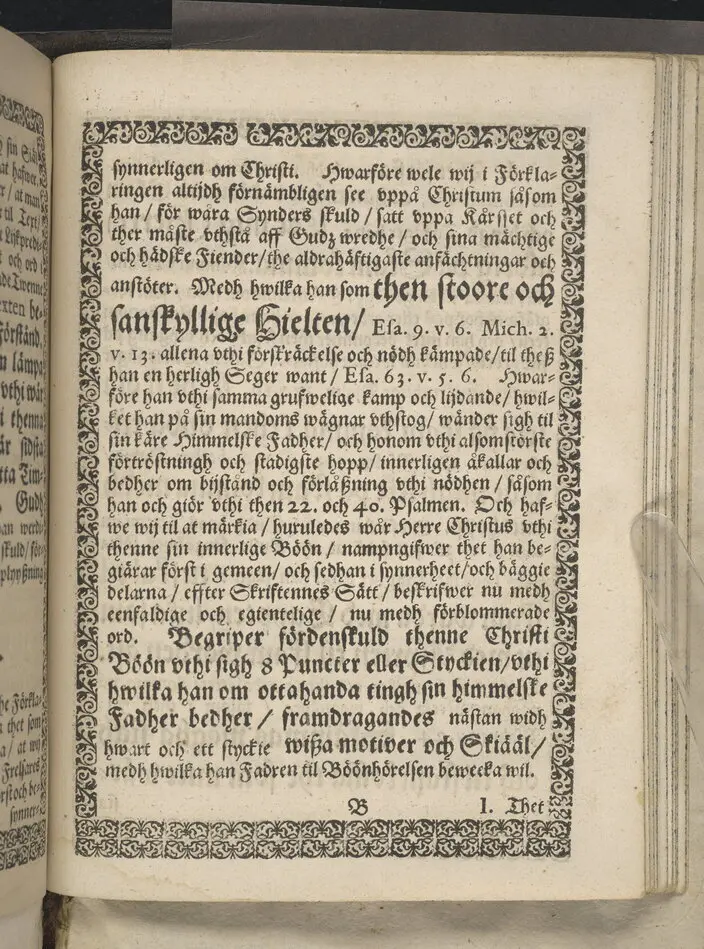 synnerligen om Christi. Hwarföre wele wij i Förkla-
ringen altijdh förnämbligen see vppå Christum såsom
han / för wåra Synders skuld / satt vppa Kårsset och
ther måste vthstå aff Gudz wredhe / och sina mächtige
och hädske Fiender / the aldrahäftigaste anfächtningar och
anstöter. Medh hwilka han som then stoore och
sanskyllige Hielten / Esa. 9. v. 6. Mich. 2.
v. 13. allena vthi förskräckelse och nödh kämpade / til theß
han en herligh Seger want / Esa. 63. v. 5. 6. Hwar-
före han vthi samma grufwelige kamp och lijdande / hwil-
ket han på sin mandoms wägnar vthstog / wänder sigh til
sin käre Himmelske Fadher / och honom vthi alsomstörste
förtröstningh och stadigste hopp / innerligen åkallar och
bedher om bijstånd och förlåßning vthi nödhen / såsom
han och giör vthi then 22. och 40. Psalmen. Och haf-
we wij til at märkia / huruledes wår Herre Christus vthi
thenne sin innerlige Böön / nampngifwer thet han be-
giärar först i gemeen / och sedhan i synnerheet / och bäggie
delarna / effter Skriftennes Sätt / beskrifwer nu medh
eenfaldige och egientelige / nu medh förblommerade
ord. Begriper fördenskuld thenne Christi
Böön vthi sigh 8 Puncter eller Styckien / vthi
hwilka han om ottahanda tingh sin himmelske
Fadher bedher / framdragandes nästan widh
hwart och ett styckie wißa motiver och Skiääl /
medh hwilka han Fadren til Böönhörelsen beweeka wil.
B I. Thet